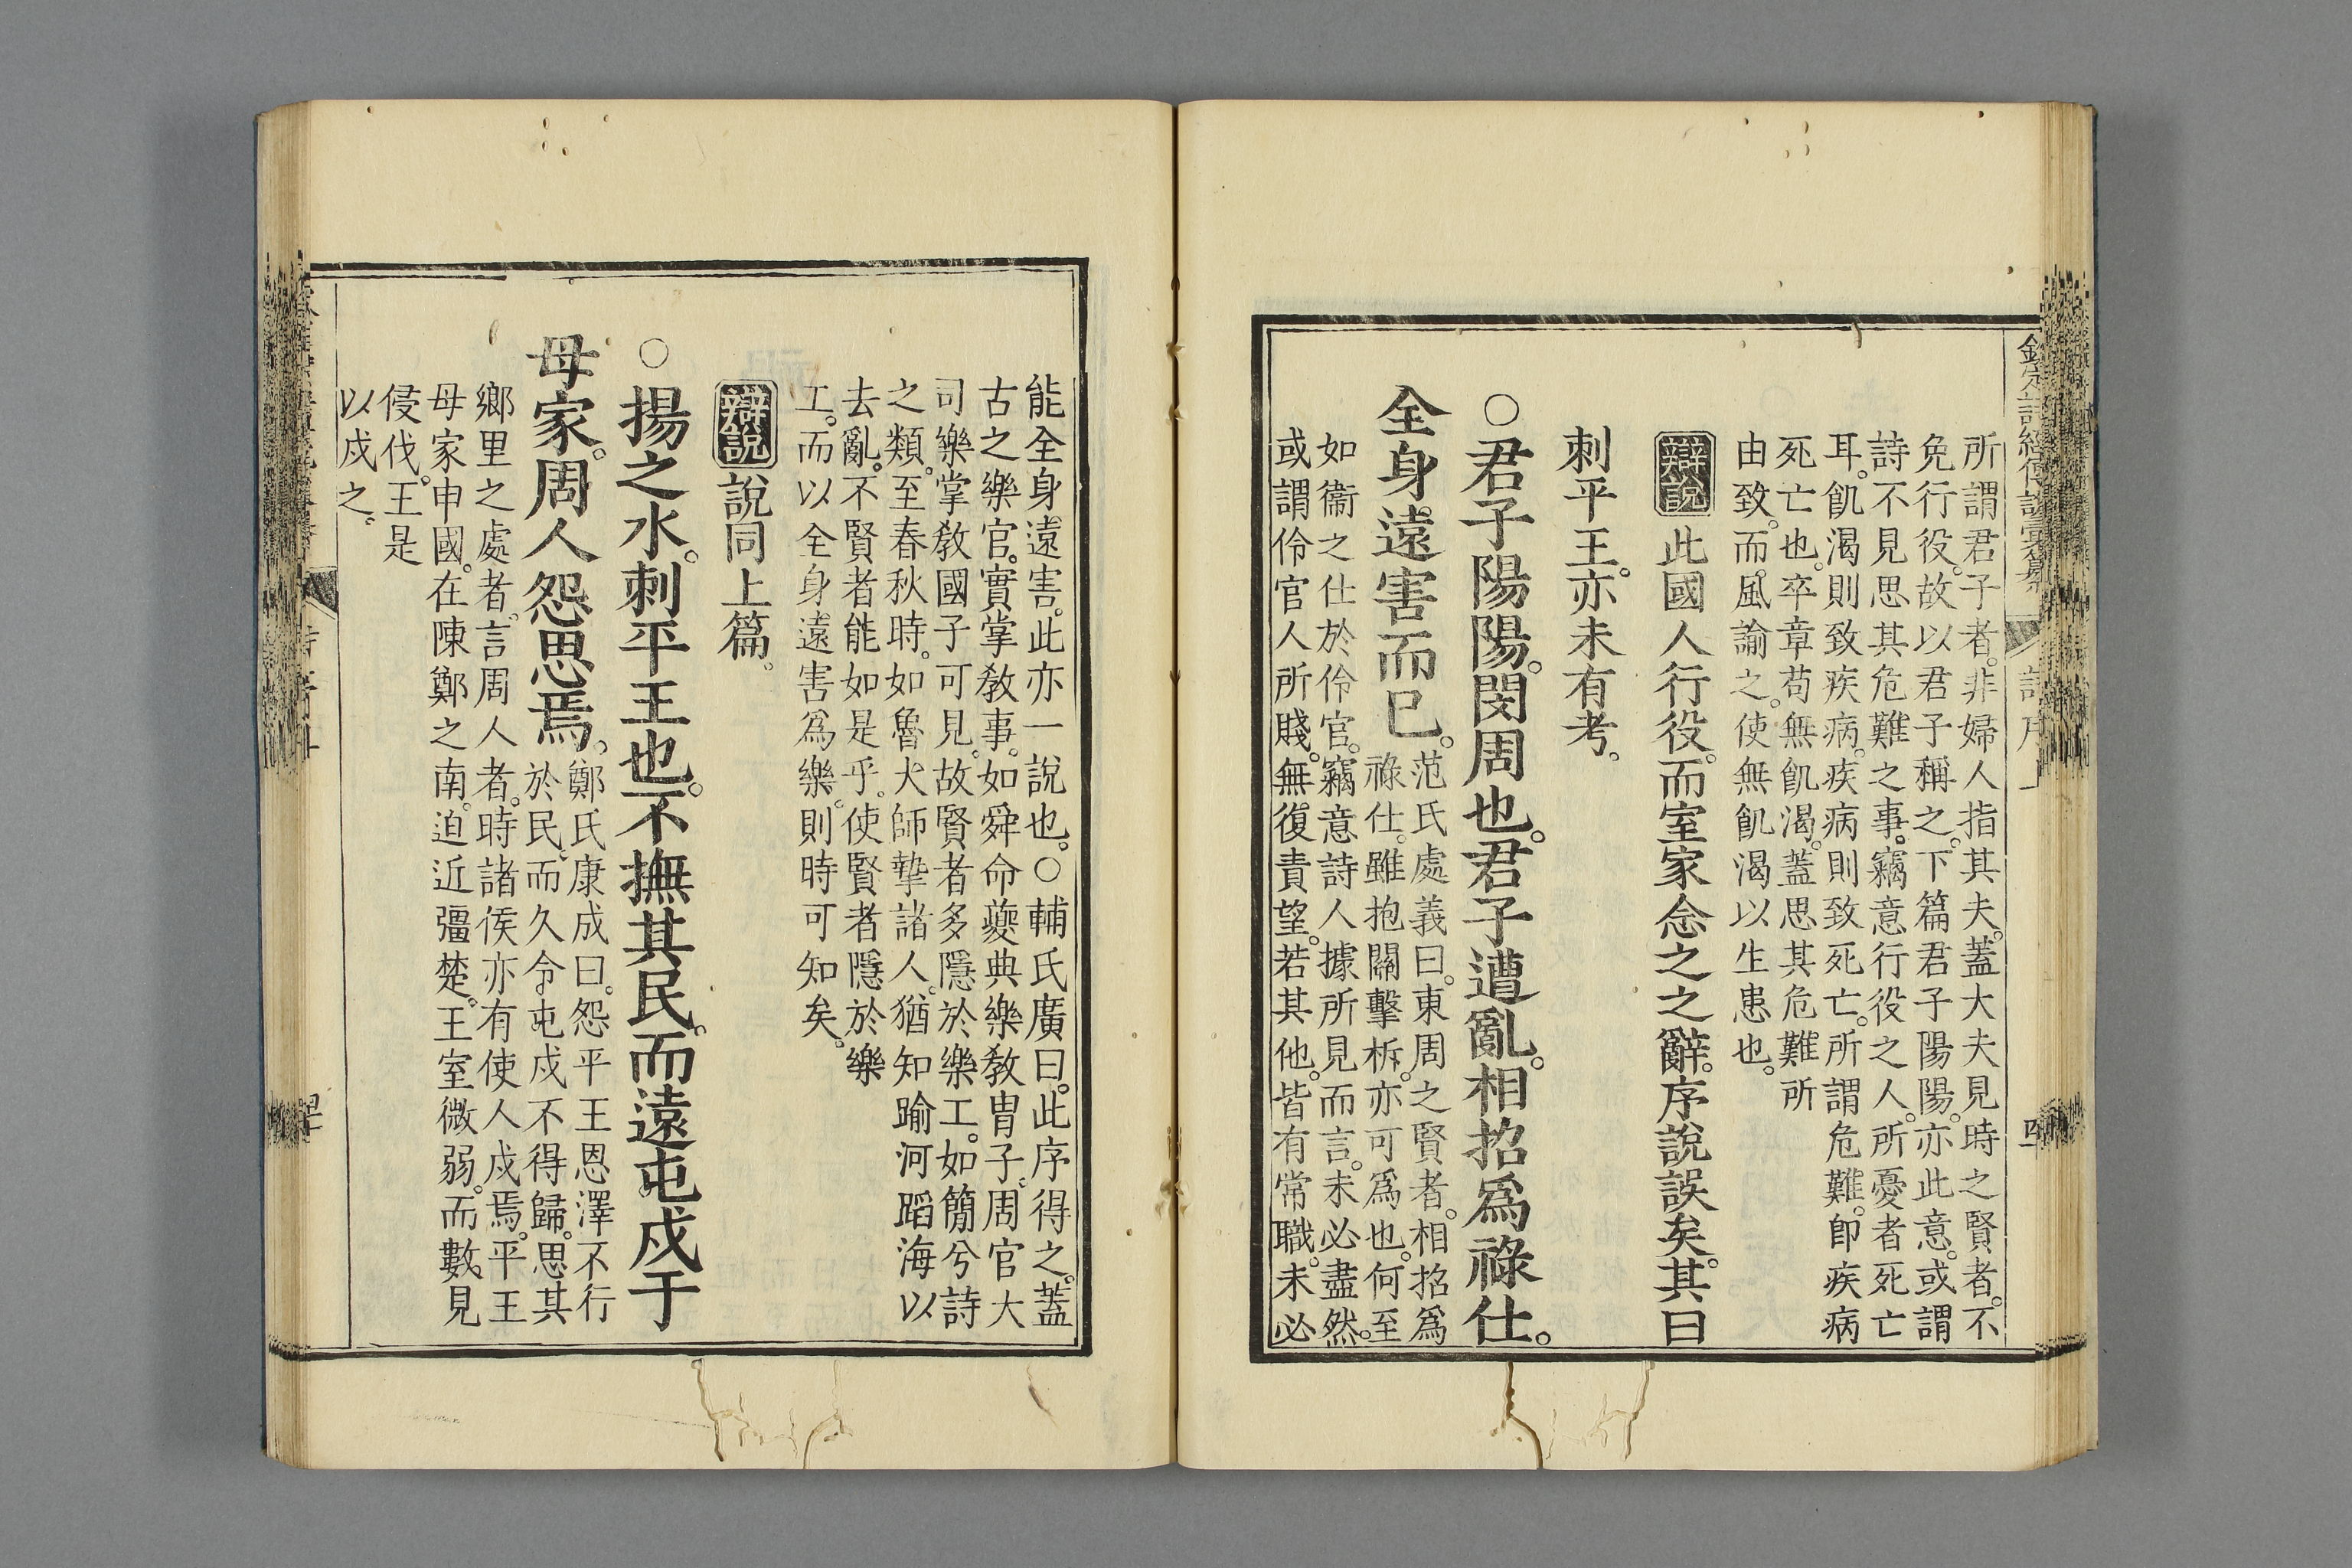 所謂君子者。非婦人指其夫。蓋大夫見時之賢者。不
免行役。故以君子稱之。下篇君子陽陽。亦此意。或謂
詩不見思其危難之事。竊意行役之人。所憂者死亡
耳。飢渴則致疾病。疾病則致死亡。所謂危難。卽疾病
死亡也。卒章苟無飢渴。蓋思其危難所
由致。而風諭之。使無飢渴以生患也。
辯說 此國人行役。而室家念之之辭。序說誤矣。其曰
刺平王。亦未有考。
○君子陽陽。閔周也。君子遭亂。相招爲祿仕。
全身遠害而已。
范氏處義曰。東周之賢者。相招爲
祿仕。雖抱關擊柝。亦可爲也。何至
如衞之仕於伶官。竊意詩人據所見而言。未必盡然。
或謂伶官人所賤。無復責望。若其他。皆有常職。未必
能全身遠害。此亦一說也。○輔氏廣曰。此序得之。蓋
古之樂官。實掌敎事。如舜命夔典樂敎胄子。周官大
司樂掌敎國子可見。故賢者多隱於樂工。如簡兮詩
之類。至春秋時。如魯大師摯諸人。猶知踰河蹈海以
去亂。不賢者能如是乎。使賢者隱於樂
工。而以全身遠害爲樂。則時可知矣。
辯說 說同上篇。
○揚之水。刺平王也。不撫其民。而遠屯戍于
母家。周人怨思焉。
鄭氏康成曰。怨平王恩澤不行
於民。而久令屯戍不得歸。思其
鄉里之處者。言周人者。時諸侯亦有使人戍焉。平王
母家申國。在陳鄭之南。迫近彊楚。王室微弱。而數見
侵伐。王是
以戍之。